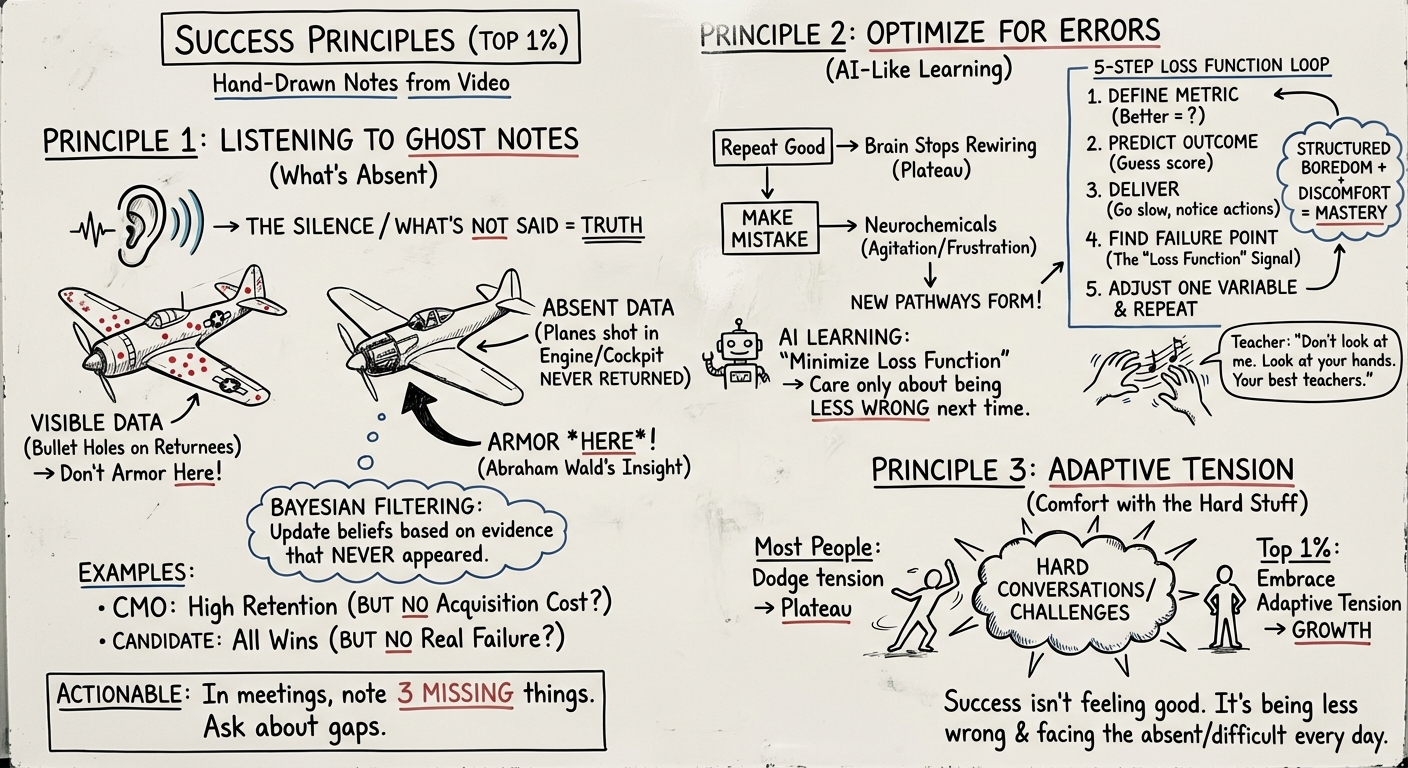 SUCCESS PRINCIPLES (TOP 1%)
Hand-Drawn Notes from Video
PRINCIPLE 1: LISTENING TO GHOST NOTES
(What's Absent)
→ THE SILENCE / WHAT'S NOT SAID = TRUTH
VISIBLE DATA
(Bullet Holes on Returnees)
→ Don't Armor Here!
ABSENT DATA
(Planes shot in
Engine/Cockpit
NEVER RETURNED)
ARMOR *HERE*!
(Abraham Wald's Insight)
BAYESIAN FILTERING:
Update beliefs based on evidence
that NEVER appeared.
EXAMPLES:
• CMO: High Retention (BUT NO Acquisition Cost?)
• CANDIDATE: All Wins (BUT NO Real Failure?)
ACTIONABLE: In meetings, note 3 MISSING things.
Ask about gaps.
PRINCIPLE 2: OPTIMIZE FOR ERRORS
(AI-Like Learning)
Repeat Good → Brain Stops Rewiring
(Plateau)
MAKE
MISTAKE
→ Neurochemicals
(Agitation/Frustration)
NEW PATHWAYS FORM!
5-STEP LOSS FUNCTION LOOP
1. DEFINE METRIC
(Better = ?)
2. PREDICT OUTCOME
(Guess score)
3. DELIVER
(Go slow, notice actions)
4. FIND FAILURE POINT
(The "Loss Function" Signal)
5. ADJUST ONE VARIABLE
& REPEAT
STRUCTURED
BOREDOM +
+
DISCOMFORT
= MASTERY
AI LEARNING:
"Minimize Loss Function"
→ Care only about being
LESS WRONG next time.
Teacher: "Don't look at
me. Look at your hands.
Your best teachers."
PRINCIPLE 3: ADAPTIVE TENSION
(Comfort with the Hard Stuff)
Most People:
Dodge tension
→ Plateau
HARD
CONVERSATIONS/
CHALLENGES
Top 1%:
Embrace
Adaptive Tension
→ GROWTH
Success isn't feeling good. It's being less
wrong & facing the absent/difficult every day.